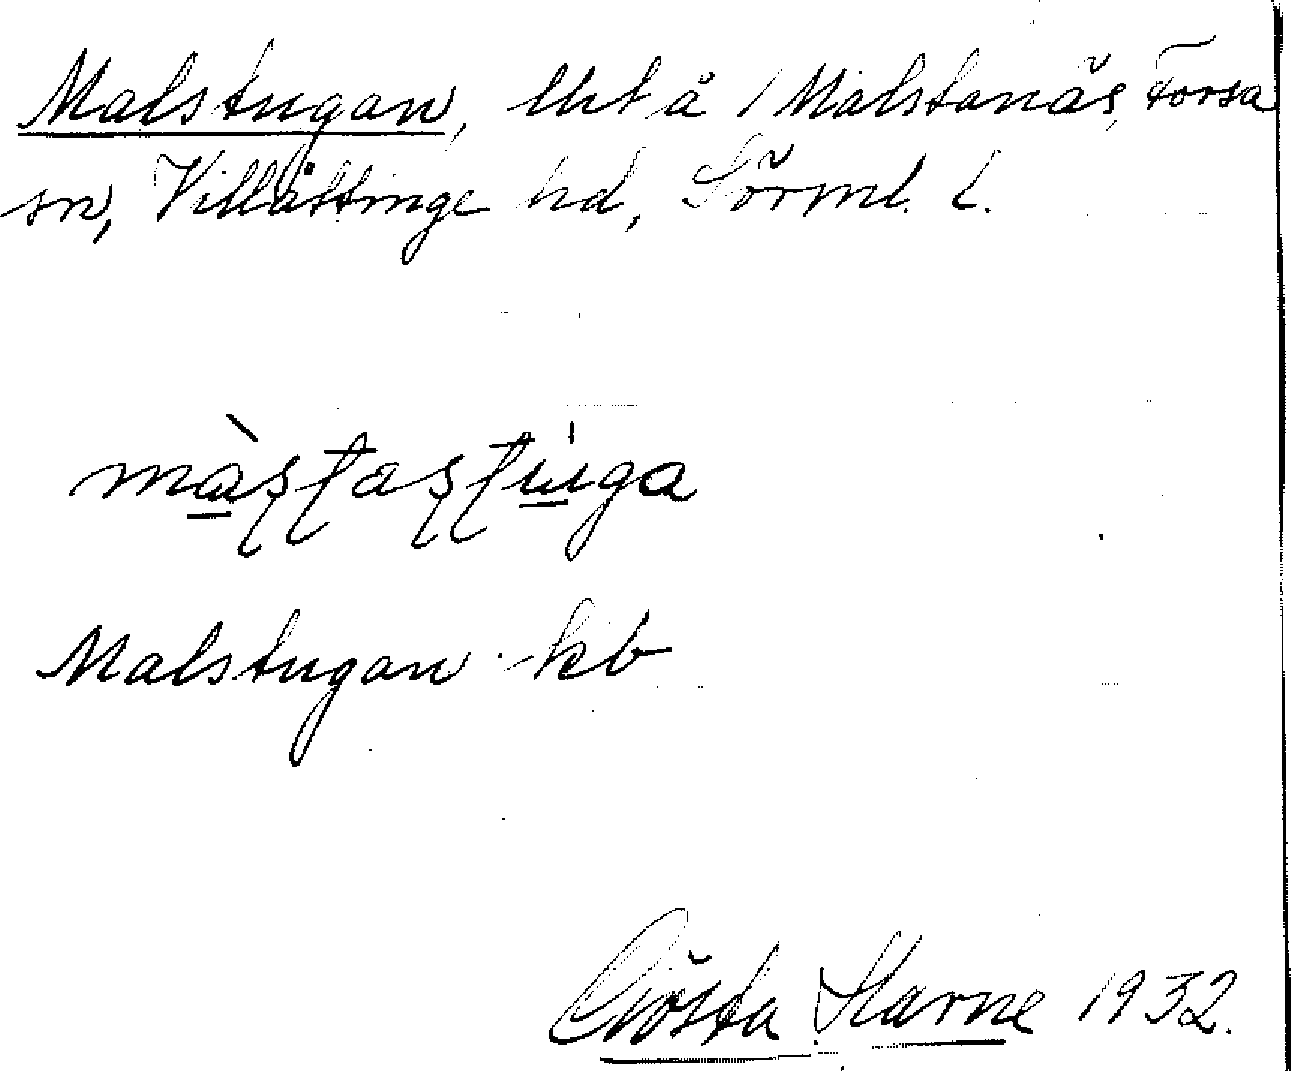 Malstugan, lht å 1 Malstanäs, Forsa
sn, Villåttinge hd, Sörml. l.
màʂʈaʂʈúga
Malstugan kb
Gösta Harne 1932.